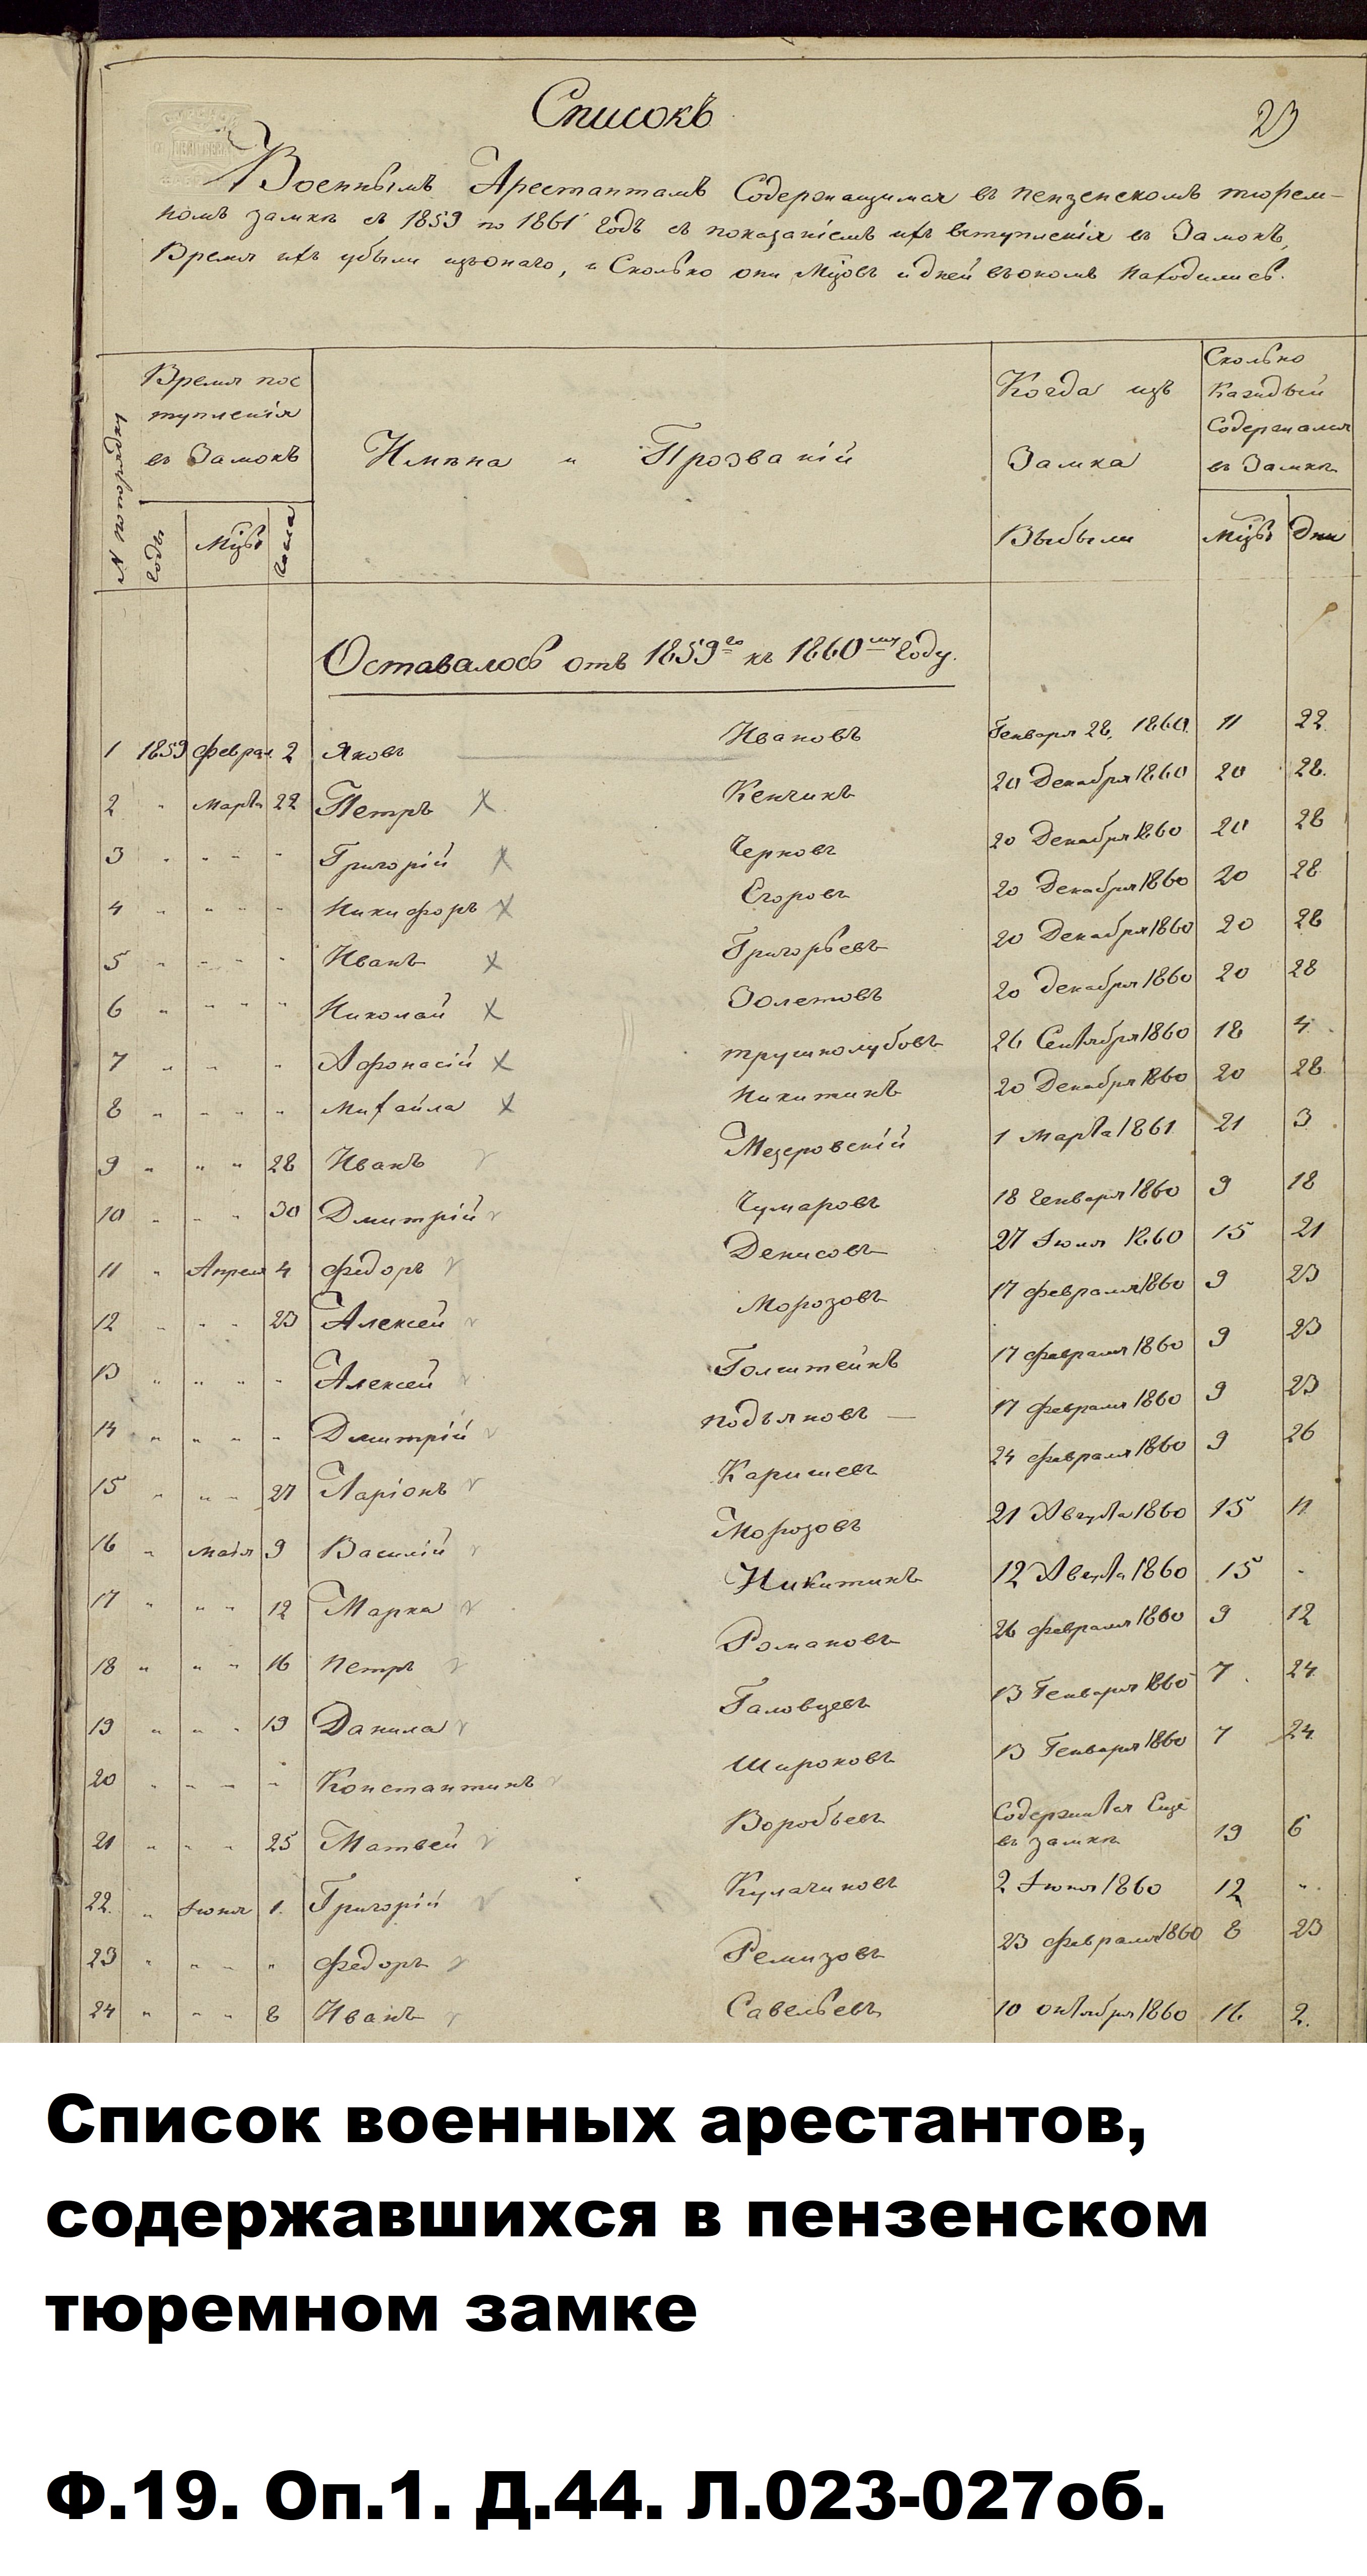 Списокъ
23
Военнымъ Арестантамъ Содержащимся въ пензенскомъ тюрем-
номъ замкѣ съ 1859 по 1861 годъ съ показаніемъ ихъ вступленія въ Замокъ,
Время ихъ убыли изъ онаго, и Сколько они Мцовъ и дней въ ономъ находились.
Время пос
тупленія
въ Замокъ
годъ Мцъ Числа
Имена и Прозваній
Когда изъ
Замка
Выбыли
Сколько
Каждый
Содержался
въ Замкѣ
Мцъ Дни
Оставалось отъ 1859го къ 1860му Году.
1 1859 Феврал 2 Яковъ Ивановъ Генваря 28, 1860 11 22
2 " Марта 22 Петръ Кенчикъ 20 Декабря 1860 20 28.
3 " " " " Григорій Черновъ 20 Декабря 1860 20 28
4 " " " " Никифоръ Егоровъ 20 Декабря 1860 20 28
5 " " " " Иванъ Григорьевъ 20 Декабря 1860 20 28
6 " " " " Николай Золетовъ 20 Декабря 1860 20 28
7 " " " Афонасій трушнолубовъ 26 Сентября 1860 18 4
8 " " " " Михайла Никитинъ 20 Декабря 1860 20 28
9 " " " 28 Иванъ Мезеровскій 1 Марта 1861 21 3
10 " " " 30 Дмитрій Чумаровъ 18 Генваря 1860 9 18
11 " Апреля 4 Федоръ Денисовъ 27 Іюня 1860 15 21
12 " " " 23 Алексей Морозовъ 17 февраля 1860 9 23
13 " " " " Алексей Голштейнъ 17 февраля 1860 9 23
14 " " " " Дмитрій подъяковъ — 17 февраля 1860 9 23
15 " " " 27 Ларіонъ Каришевъ 24 февраля 1860 9 26
16 " Маія 9 Василій Морозовъ 21 Августа 1860 15 11
17 " " " 12 Марка Никитинъ 12 Августа 1860 15 "
18 " " " 16 Петръ Романовъ 26 февраля 1860 9 12
19 " " " 19 Данила Галовцевъ 13 Генваря 1860 7 24
20 " " " " Константинъ Широковъ 13 Генваря 1860 7 24
21 " " " 25 Матвей Воробьевъ Содержится Еще
въ замкѣ 19 6
22. " Іюня 1. Григорій Кулачиковъ 2 Іюня 1860 12 "
23 " " " " Федоръ Ремизовъ 23 февраля 1860 8 23
24 " " " 8 Иванъ Савельевъ 10 октября 1860 16 2.
Список военных арестантов,
содержавшихся в пензенском
тюремном замке
Ф.19. Оп.1. Д.44. Л.023-027об.